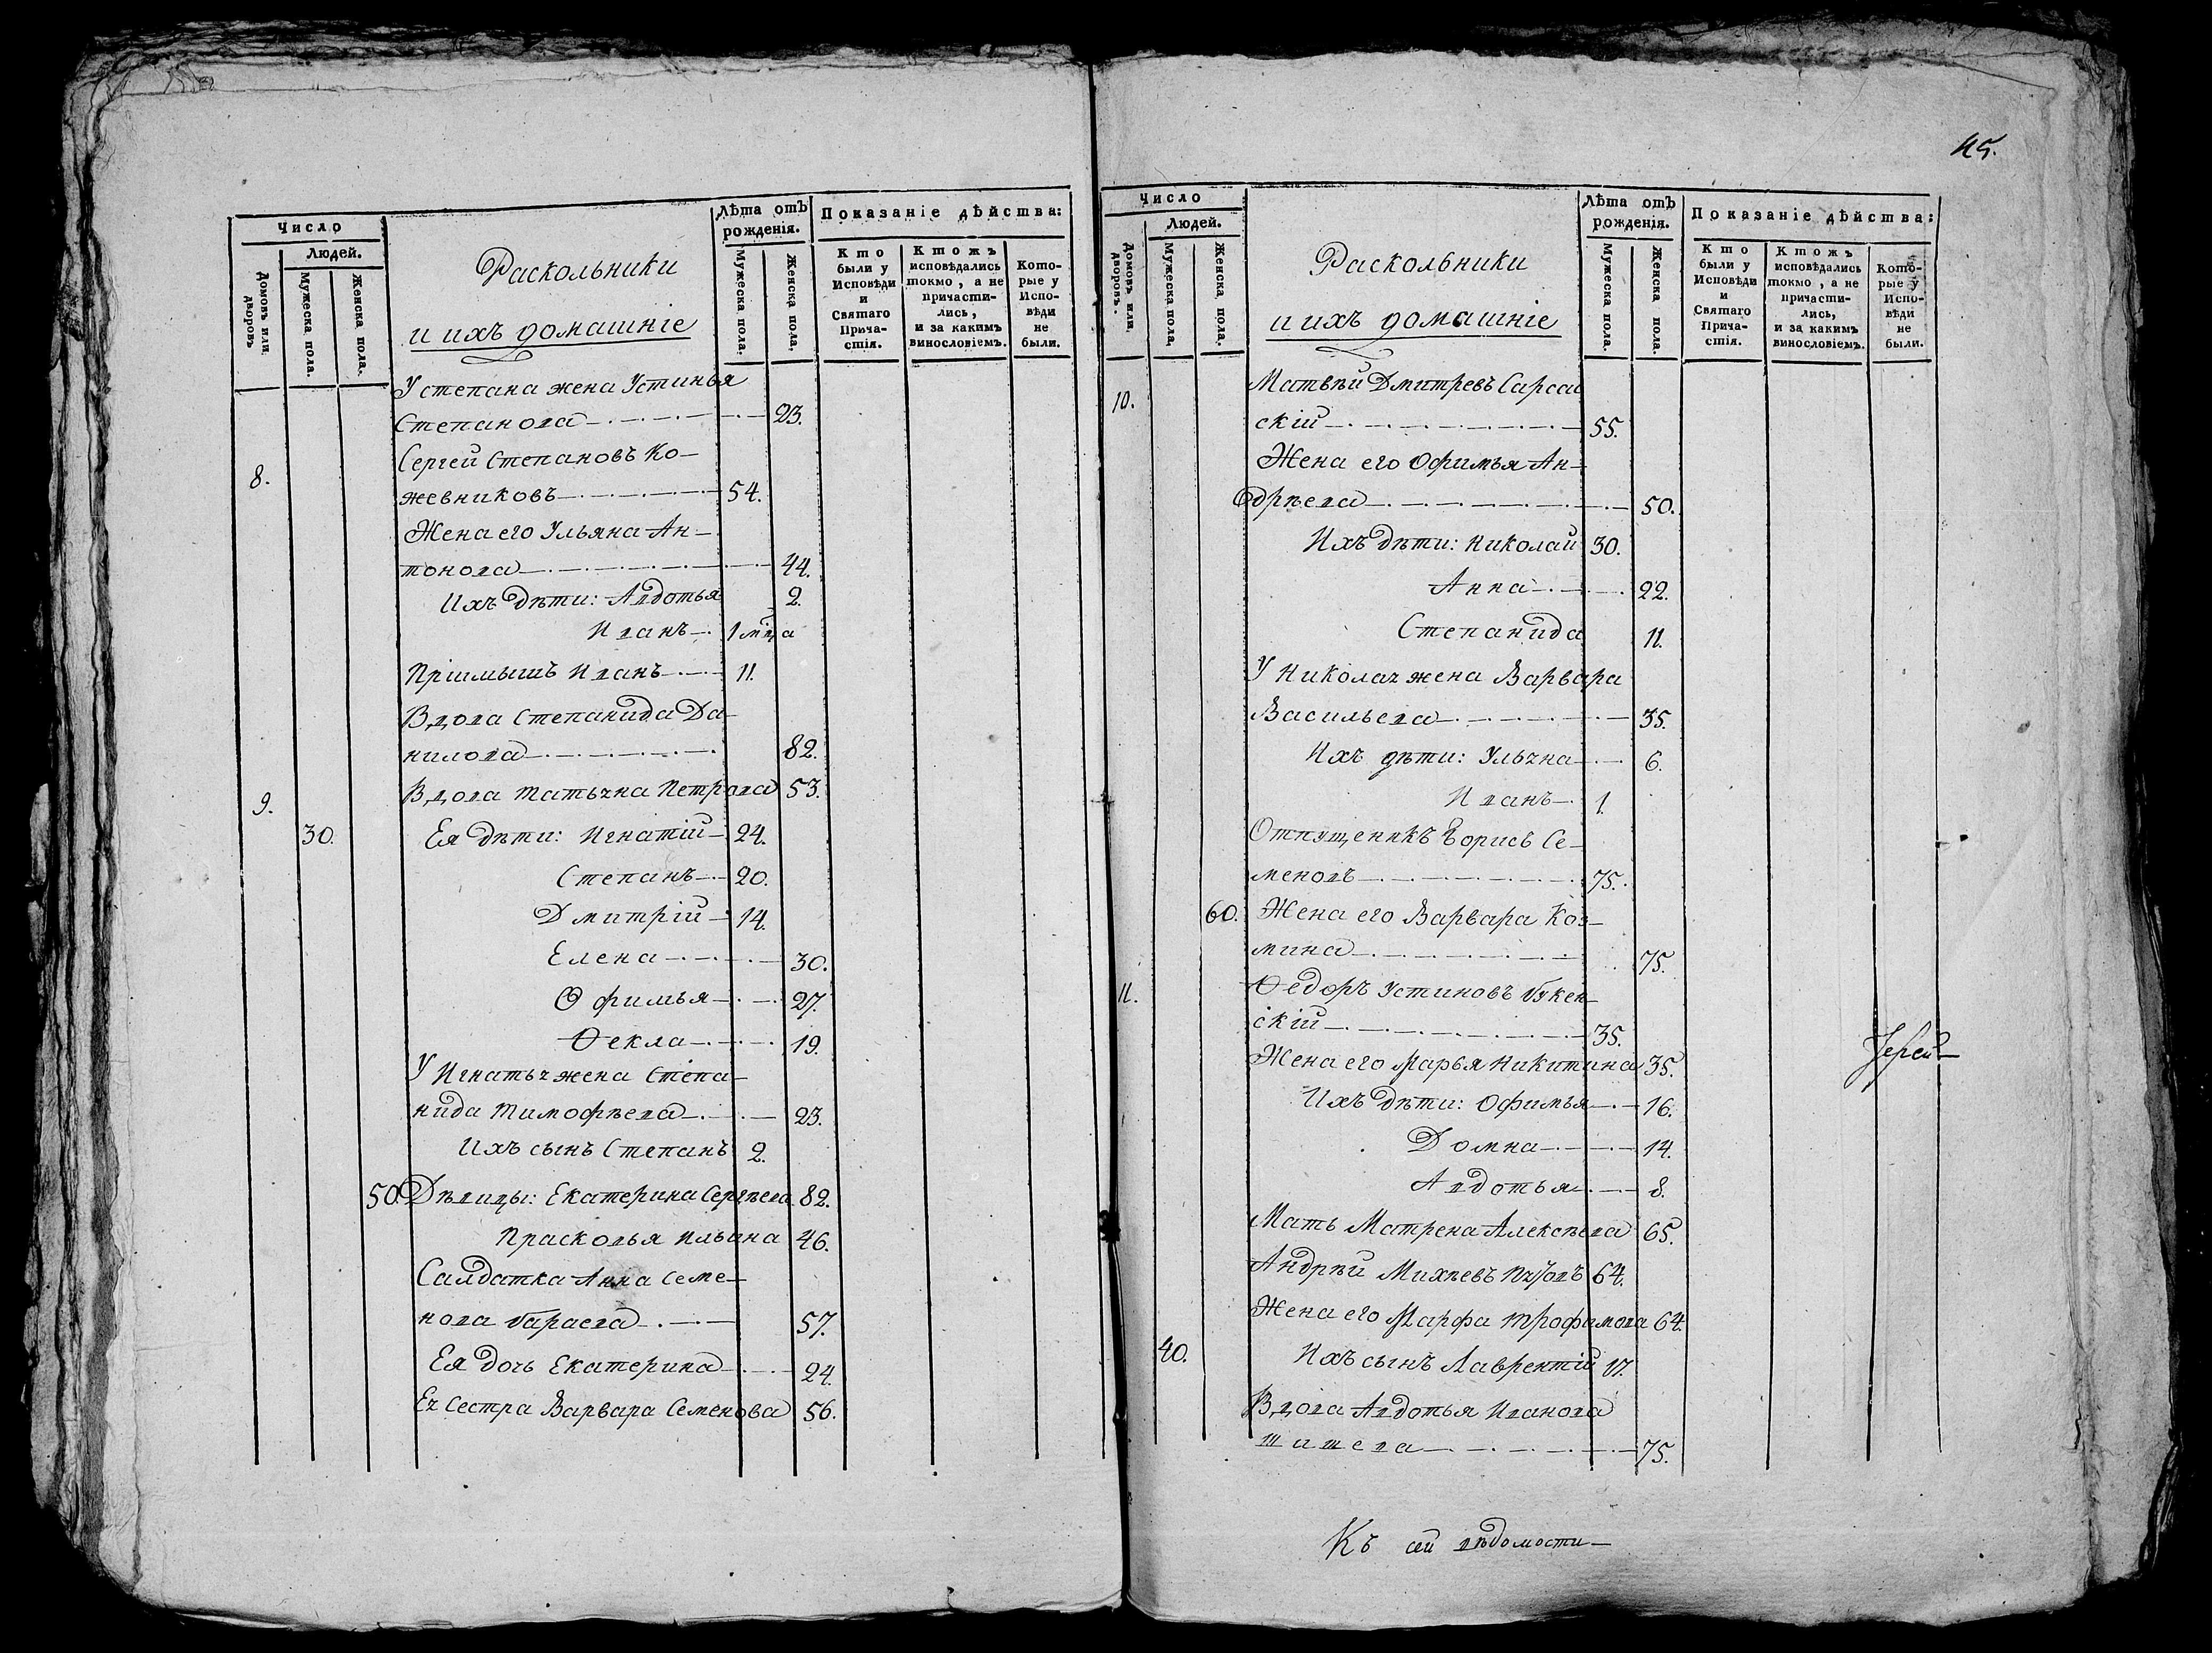 Число
Людей.
Домовъ или дворовъ
Мужеска пола.
Женска пола.
Раскольники
и ихъ домашніе
Лѣта отъ рожденія.
Мужеска пола.
Женска пола.
Показаніе дѣйства:
Кто были у Исповѣди и Святаго Прича-стія.
Ктожъ исповѣдались токмо, а не причасти-лись, и за какимъ винословіемъ.
Кото-рые у Испо-вѣди не были.
У степана жена Устинья
Степанова 23.
8. Сергей Степановъ Ко-
жевниковъ 54.
Жена его Ульяна Ан-
тонова 44.
Ихъ дѣти: Авдотья 2.
Иванъ 1 мца
Пріимышъ Иванъ 11.
Вдова Степанида Да-
нилова 82.
9. Вдова Татьяна Петрова 53.
30. Ея дѣти: Игнатій 24.
Степанъ 20.
Дмитрій 14.
Елена 30.
Офимья 27.
Ѳекла 19.
У Игнатья жена Степа-
нида Тимофѣева 23.
Ихъ сынъ Степанъ 2.
50. Дѣвицы: Екатерина Сергѣева 82.
Прасковья Ильина 46.
Салдатка Анна Семе-
нова 57.
Ея дочь Екатерина 24.
Ея Сестра Варвара Семенова 56.
45.
Число
Людей.
Домовъ или дворовъ.
Мужеска пола,
Женска пола.
Раскольники
и ихъ домашніе
Лѣта отъ рожденія.
Мужеска пола.
Женска пола.
Показаніе дѣйства:
Кто были у Исповѣди и Святаго Прича-стія.
Ктожъ исповѣдались токмо, а не причасти-лись, и за какимъ винословіемъ.
Кото-рые у Испо-вѣди не были.
10. Матвѣй Дмитревъ Сарса
скій 55.
Жена его Офимья Ан-
дрѣева 50.
Ихъ дѣти: Николай 30.
Анна 22.
Степанида 11.
У Николая жена Варвара
Васильева 35.
Ихъ дѣти: Ульяна 6.
Иванъ 1.
Отпущеникъ Борисъ Се-
меновъ 75.
60. Жена его Варвара Коз-
мина 75.
11. Ѳедоръ Устиновъ Букен-
скій 35.
Жена его Марья Никитина 35.
Іерей
Ихъ дѣти: Офимья 16.
Домна 14.
Авдотья 8.
Мать Матрена Алексѣева 65.
Андрѣй Михѣевъ 64.
Жена его Марфа Трофимова 64.
40. Ихъ сынъ Лаврентій 17.
Вдова Авдотья Иванова
75.
Къ сей вѣдомости